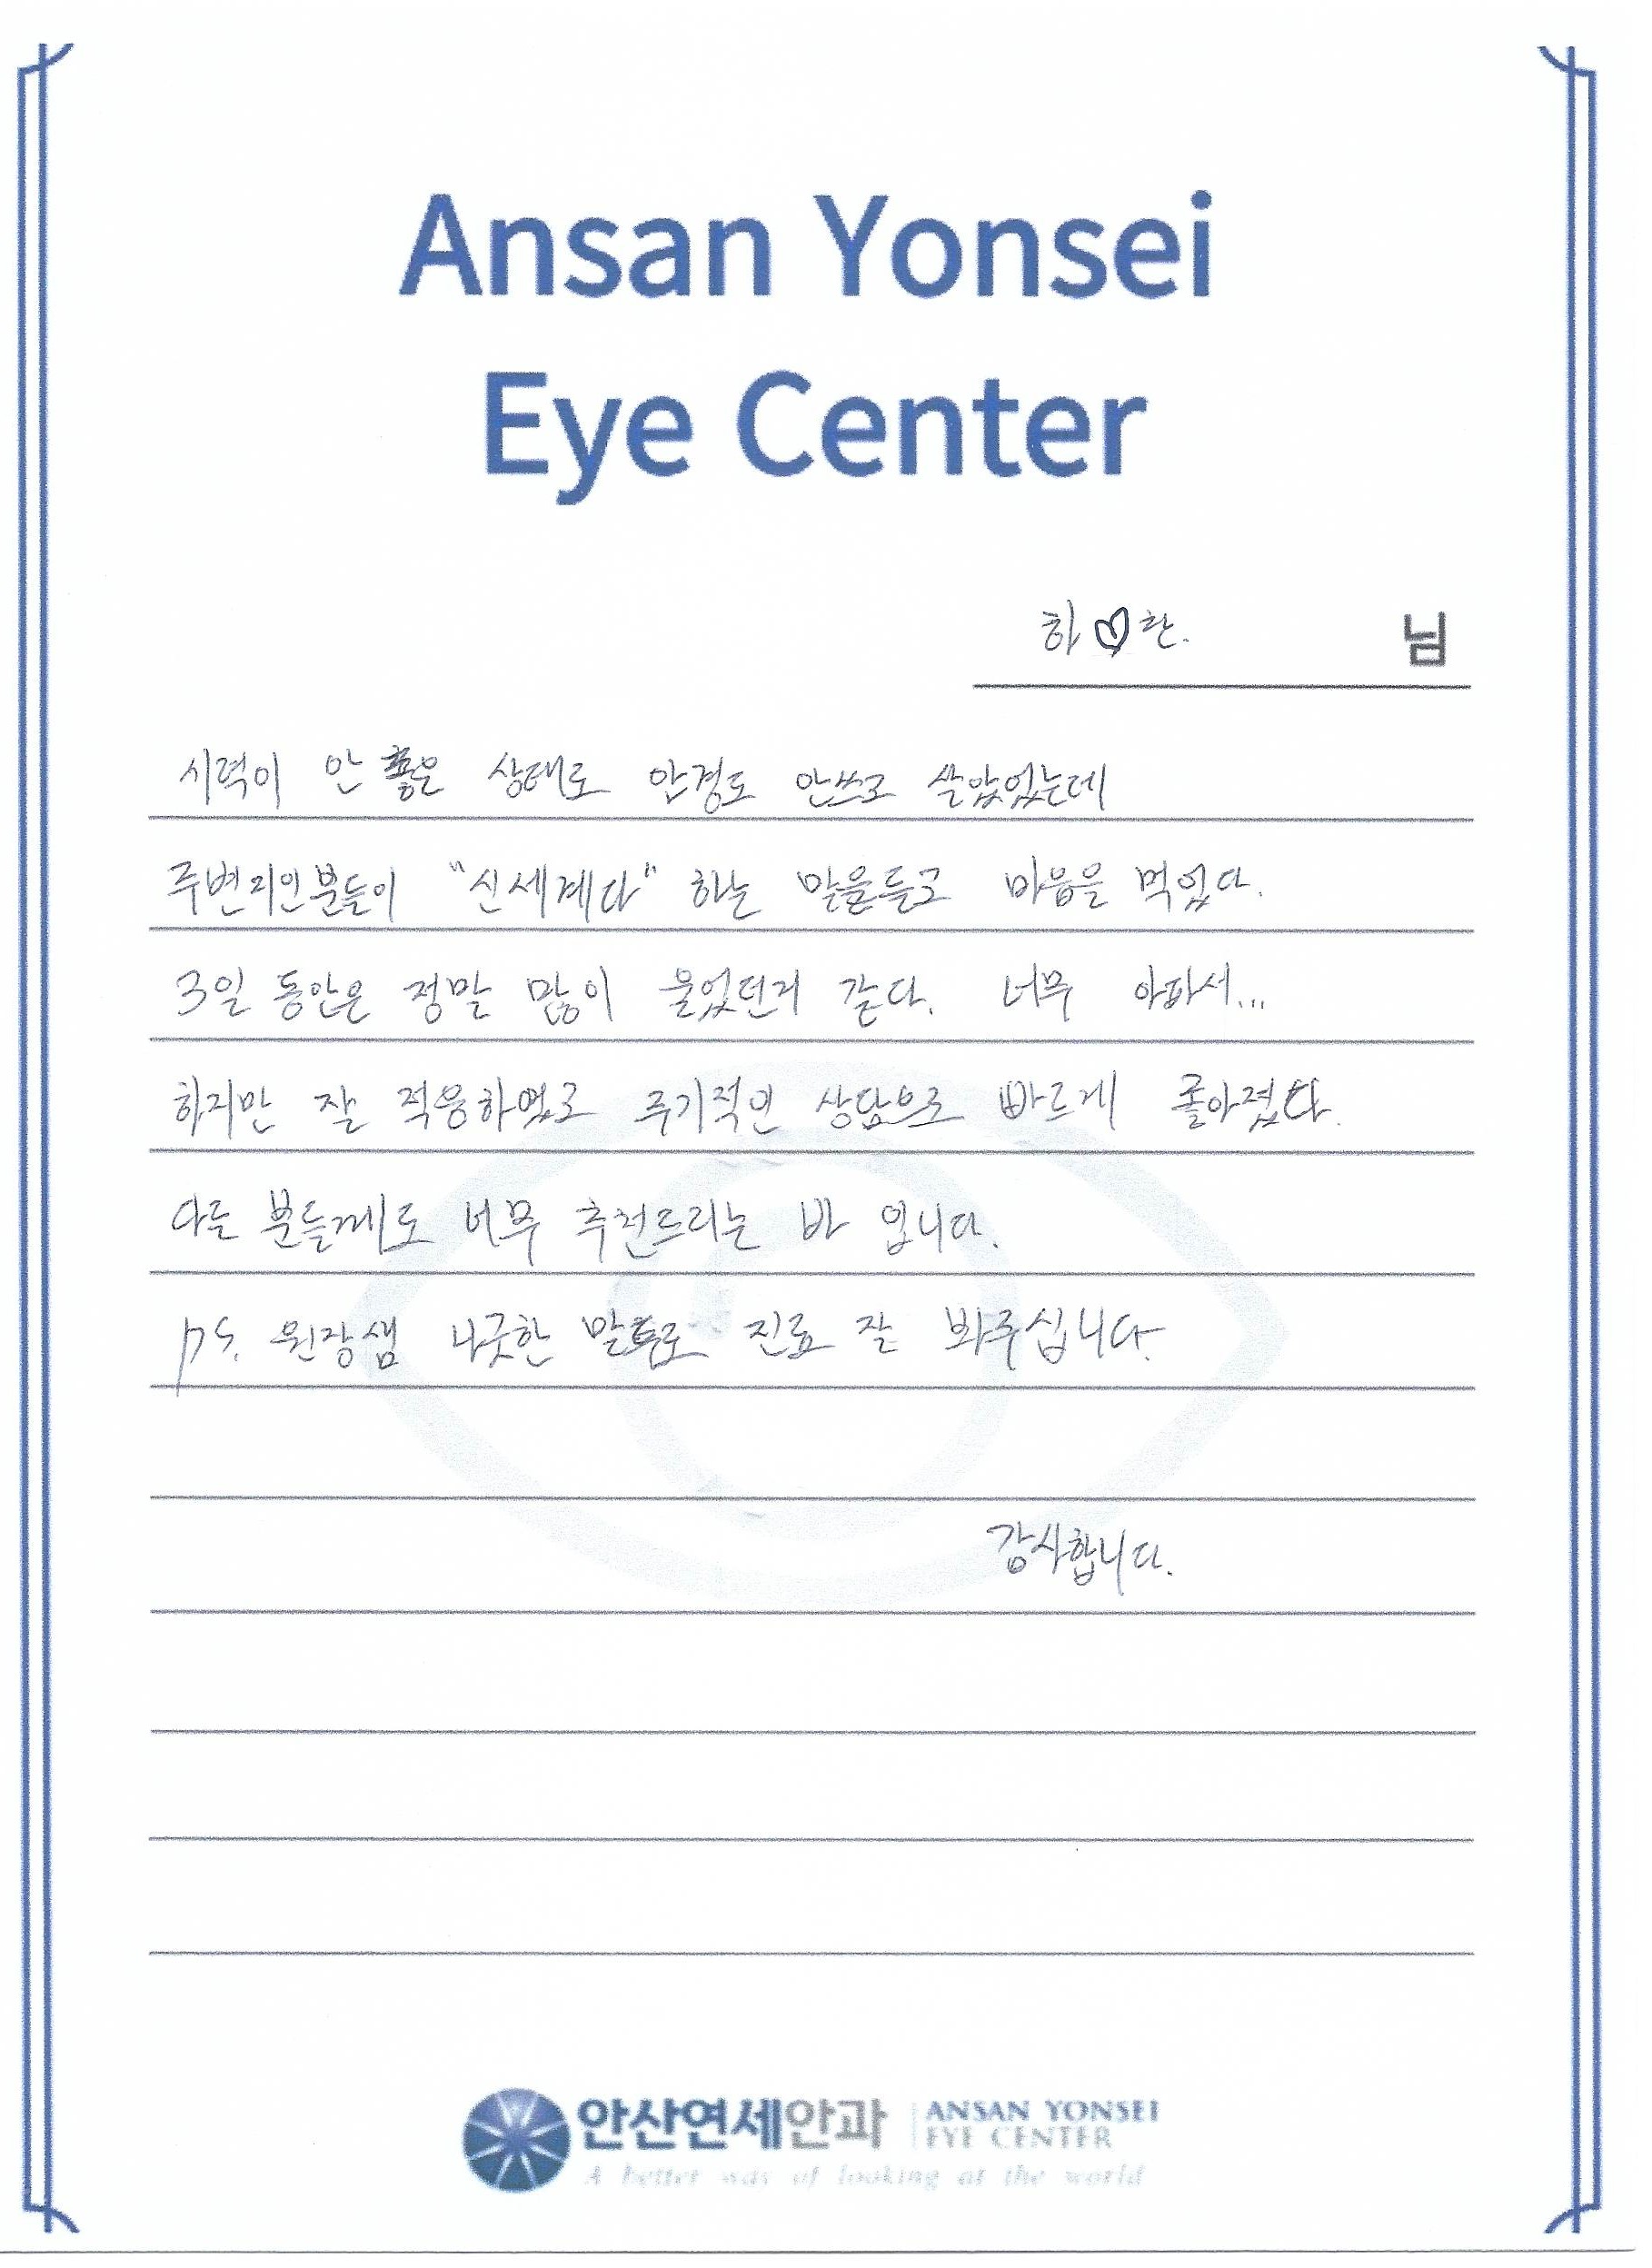 Ansan Yonsei
Eye Center
하♡찬. 님
시력이 안 좋은 상태로 안경도 안쓰고 살았었는데
주변지인분들이 "신세계다" 하는 말을듣고 마음을 먹었다.
3일 동안은 정말 많이 울었던거 같다. 너무 아파서...
하지만 잘 적응하였고 주기적인 상담으로 빠르게 좋아졌다.
다른 분들께도 너무 추천드리는 바 입니다.
ps. 원장샘 나긋한 말투로 진료 잘 봐주십니다.
감사합니다.
안산연세안과 ANSAN YONSEI
EYE CENTER
A better way of looking at the world